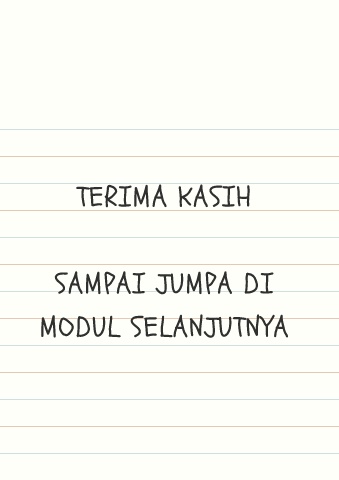 TERIMA KASIH
SAMPAI JUMPA DI
MODUL SELANJUTNYA